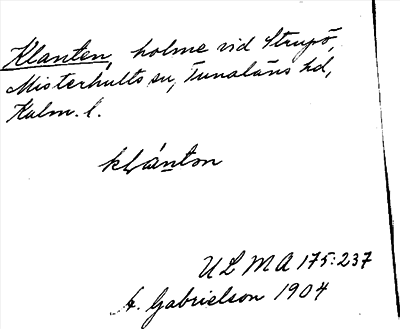 Klanten, holme vid Strupö,
Misterhults sn, Tunaläns hd,
Kalm. l.
klánton
ULMA 175:237
A. Gabrielson 1904